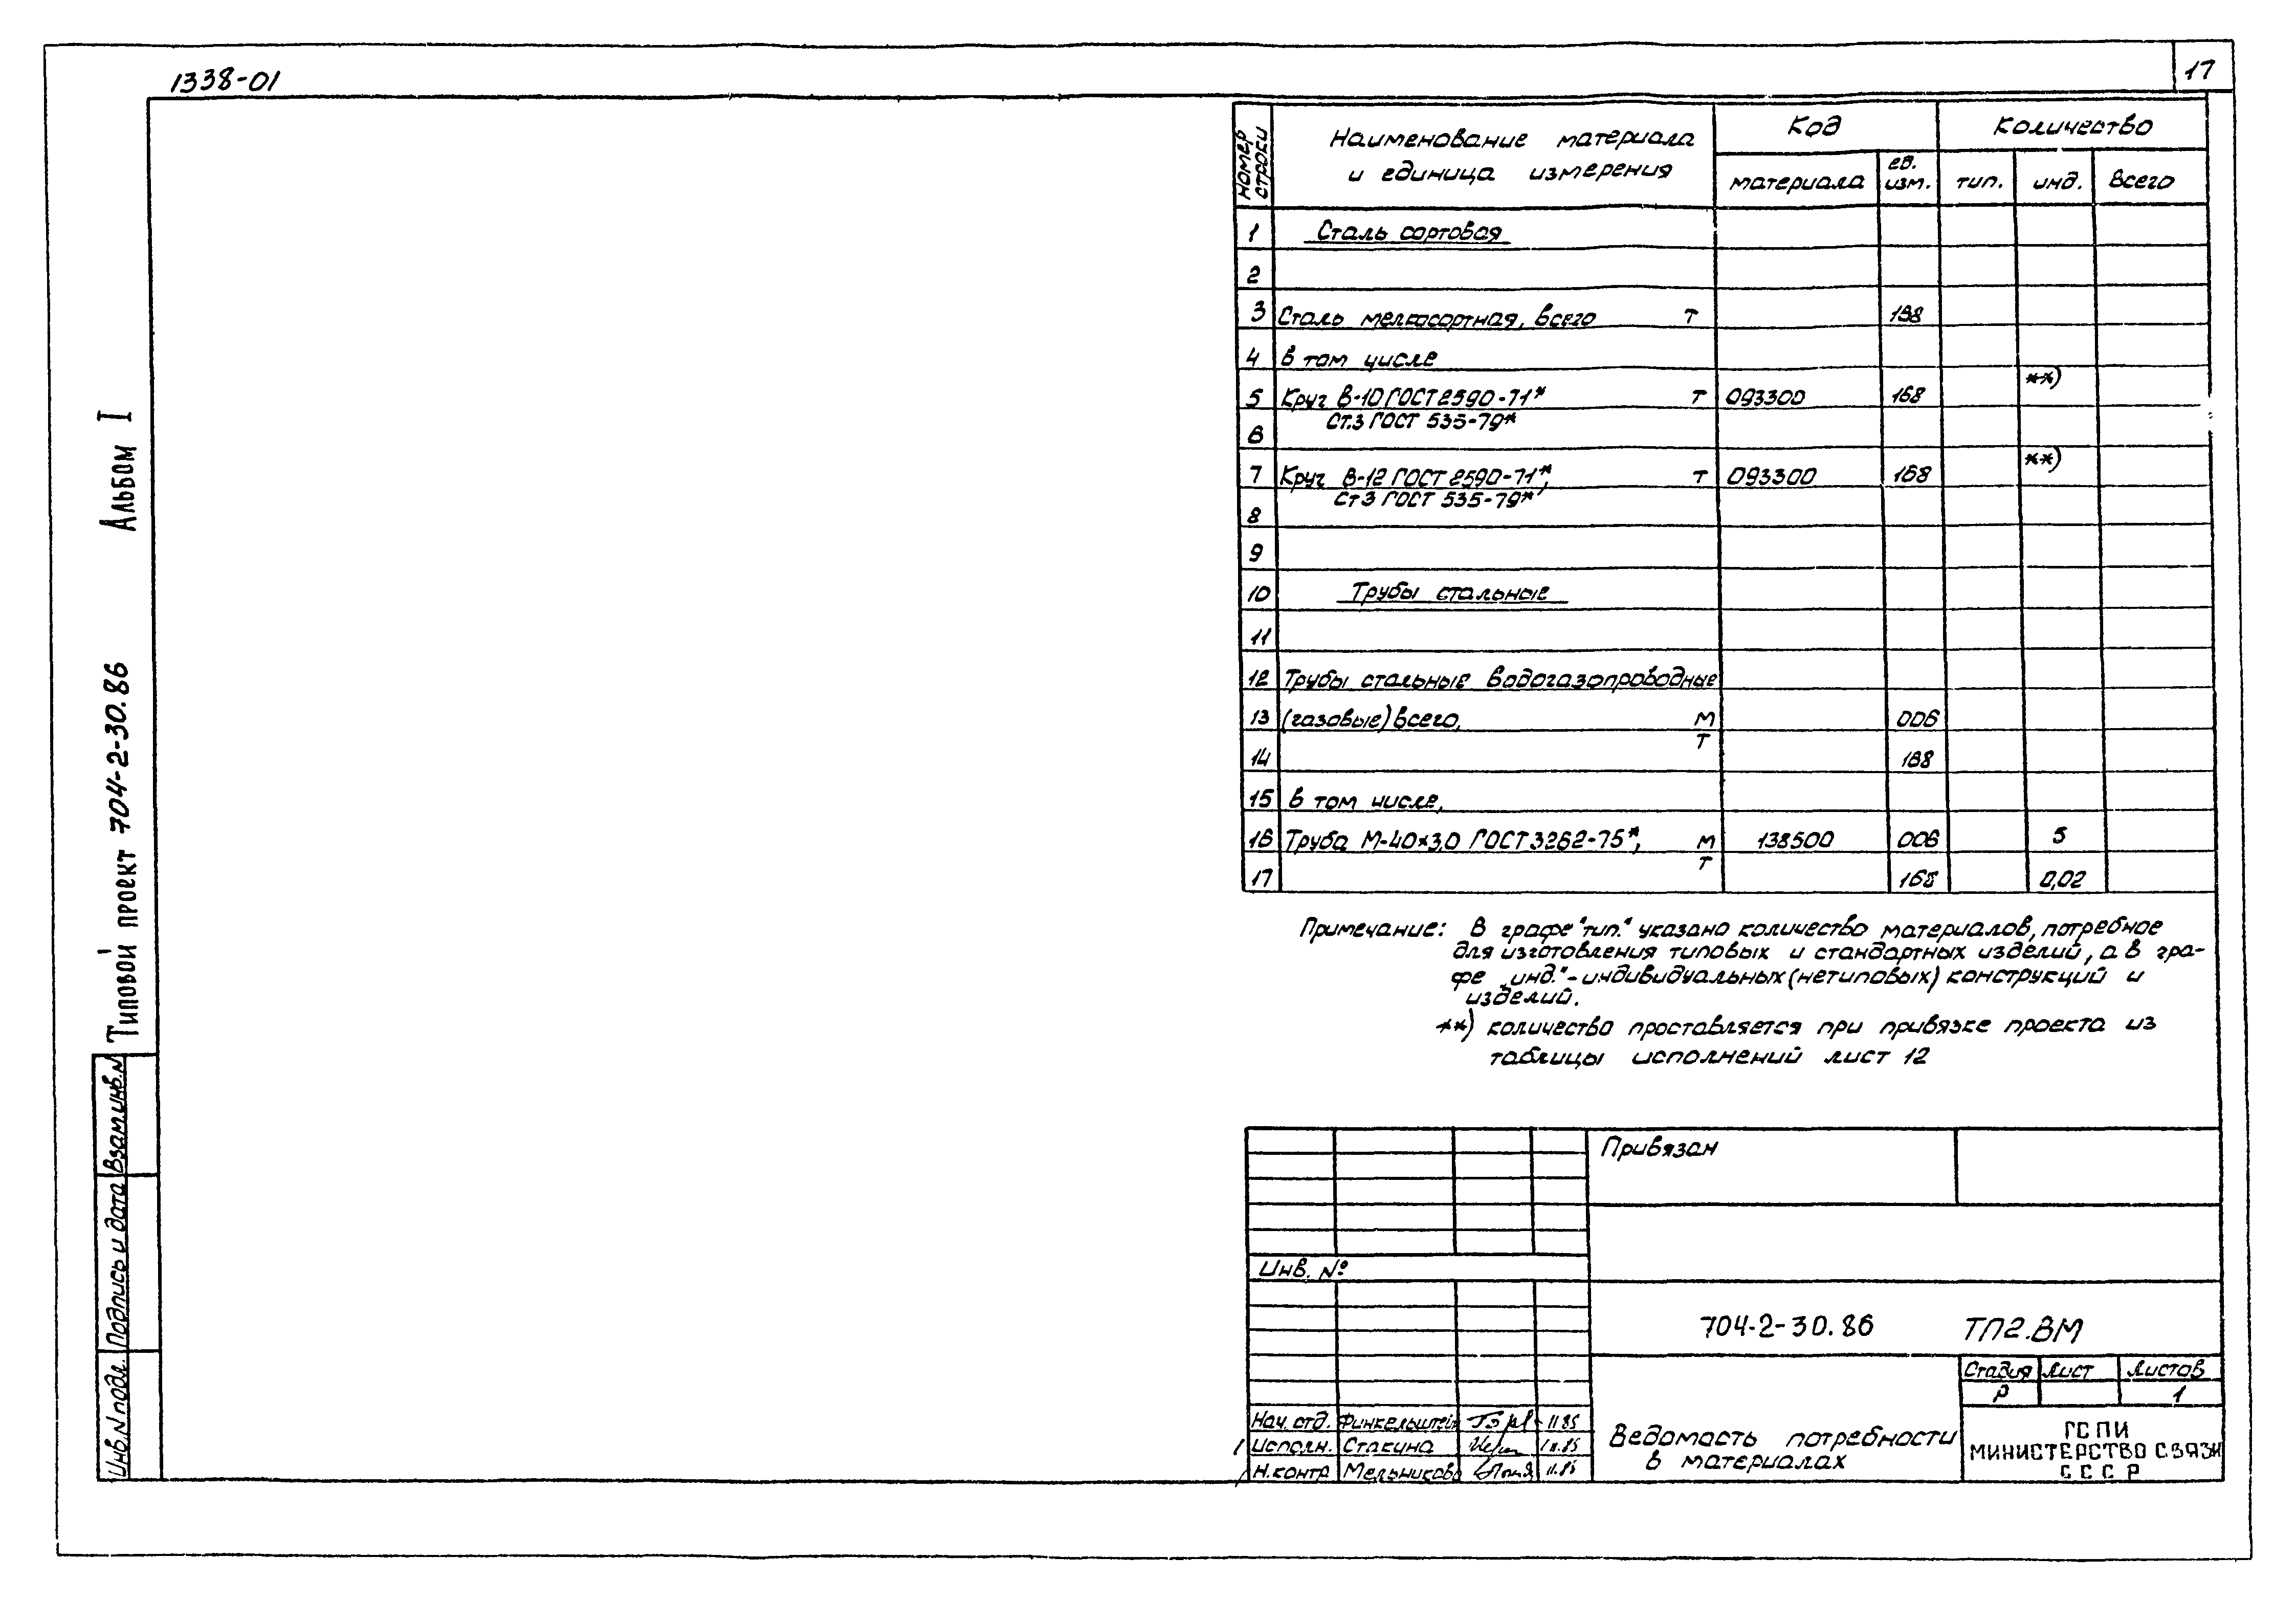 1338-01
17
Альбом I
Типовой проект 704-2-30.86
Взам.инв.N
Подпись и дата
Инв.N подл.
Номер строки
Наименование материала
и единица измерения
Код
Количество
материала
ед. изм.
тип.
инд.
Всего
1 Сталь сортовая
2
3 Сталь мелкосортная, всего т 168
4 в том числе
5 Круг В-10 ГОСТ 2590-71* т 093300 168 **)
Ст.3 ГОСТ 535-79*
6
7 Круг В-12 ГОСТ 2590-71*, т 093300 168 **)
Ст3 ГОСТ 535-79*
8
9
10 Трубы стальные
11
12 Трубы стальные водогазопроводные
13 (газовые) всего, м 006
14 т 168
15 в том числе,
16 Труба М-40×3,0 ГОСТ 3262-75*, м 138500 006 5
17 т 168 0,02
Примечание: В графе "тип." указано количество материалов, потребное
для изготовления типовых и стандартных изделий, а в гра-
фе „инд." - индивидуальных (нетиповых) конструкций и
изделий.
**) количество проставляется при привязке проекта из
таблицы исполнений лист 12
Привязан
Инв. №
704-2-30.86 ТП2.ВМ
Стадия Лист Листов
Р 1
Нач. отд. Финкельштейн 11.85
Исполн. Стакина 11.85
Н.контр Мельникова 11.85
Ведомость потребности
в материалах
ГСПИ
МИНИСТЕРСТВО СВЯЗИ
СССР